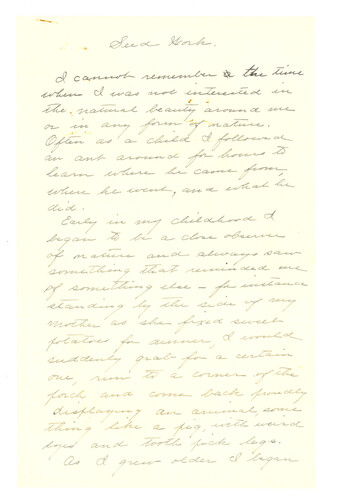 Seed Work.
I cannot remember the time
when I was not interested in
the natural beauty around me
or in any form of nature.
Often as a child I followed
an ant around for hours to
learn where he came from,
where he went, and what he
did.
Early in my childhood I
began to be a close observer
of nature and always saw
something that reminded me
of something else - for instance
standing by the side of my
mother as she fixed sweet
potatoes for dinner, I would
suddenly grab for a certain
one, run to a corner of the
porch and come back proudly
displaying an animal, some
thing like a pig, with weird
eyes and tooth pick legs.
As I grew older I began